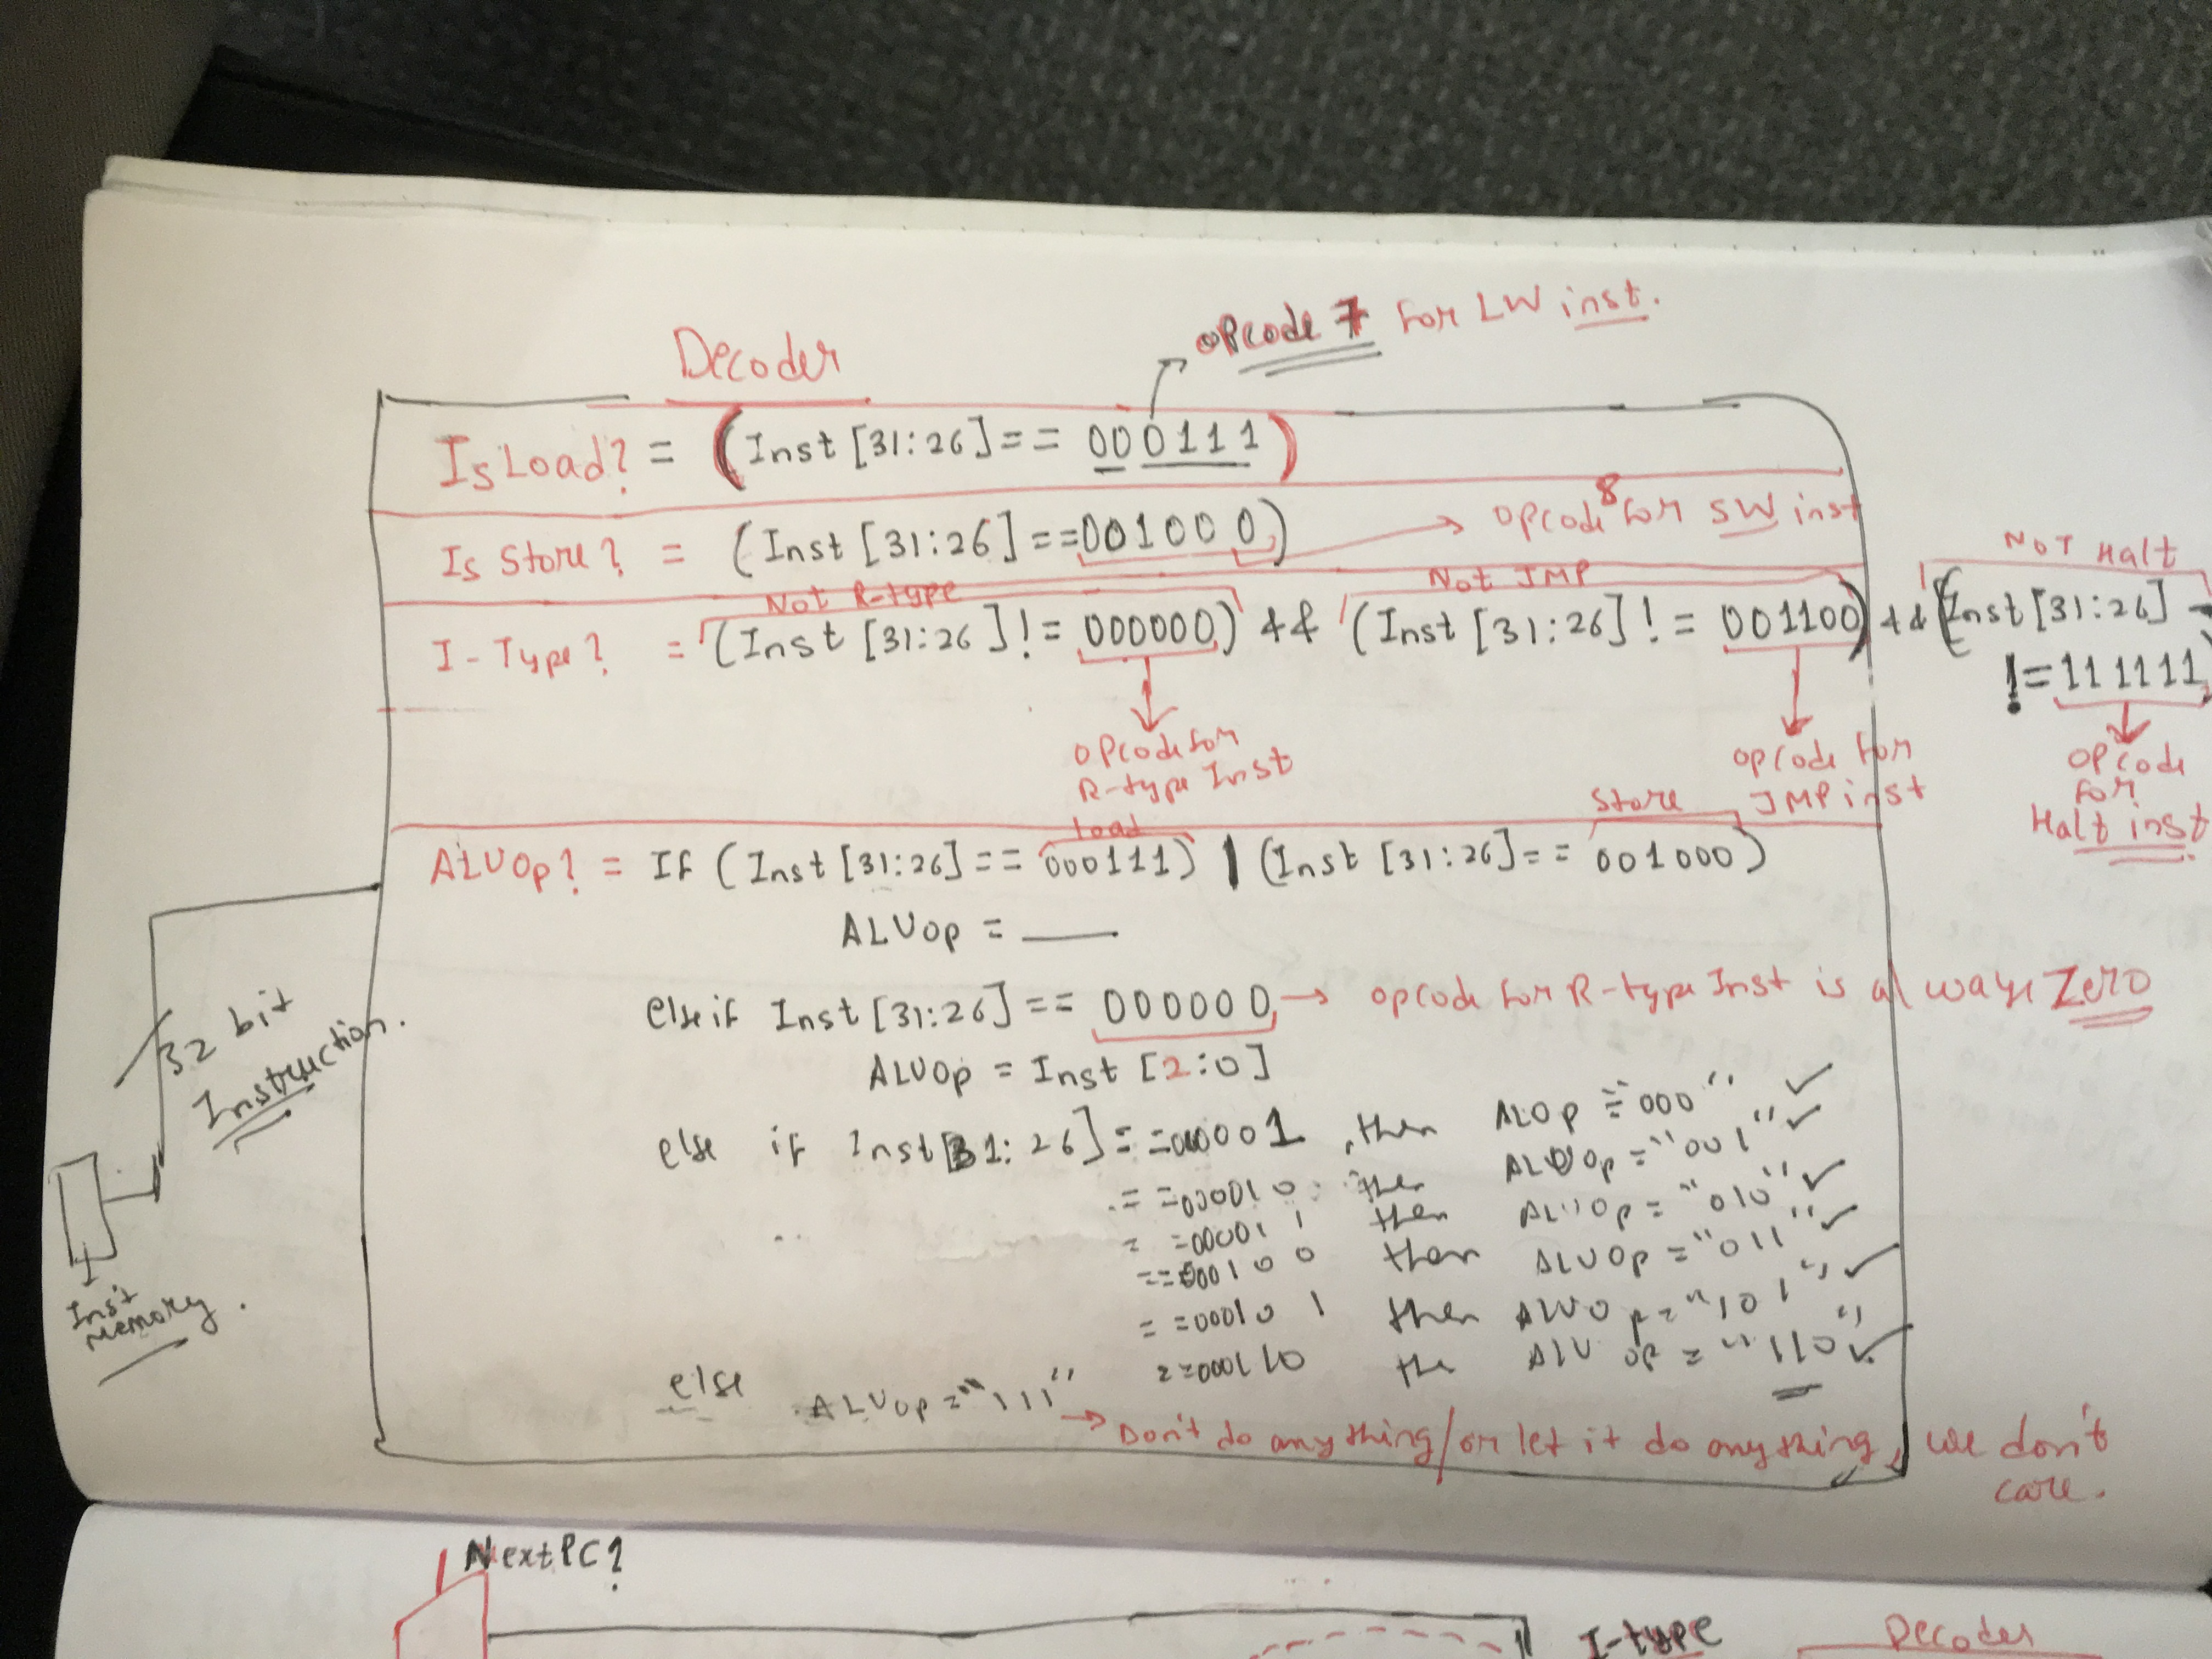 opcode 7 for LW inst.
Decoder
IsLoad? = (Inst [31:26] == 000111)
Is Store? = (Inst [31:26] == 001000) → opcode 8 for SW inst
Not R-type Not JMP NOT Halt
I-Type? = (Inst [31:26] != 000000) && (Inst [31:26] != 001100) && (Inst [31:26]
!= 111111)
opcode for
R-type Inst
opcode for
JMP inst
opcode
for
Halt inst
load store
ALUOp? = If (Inst [31:26] == 000111) | (Inst [31:26] == 001000)
ALUop = ___
else if Inst [31:26] == 000000 → opcode for R-type Inst is always Zero
ALUop = Inst [2:0]
else if Inst[31:26] == 000001, then ALOp = "000" ✓
== 000010 then ALUop = "001" ✓
== 000011 then ALUOp = "010" ✓
== 000100 then ALUOp = "011" ✓
== 000101 then ALUOp = "101" ✓
== 000110 the ALU op = "110" ✓
else ALUop = "111"
→ Don't do anything/or let it do anything, we don't
care.
32 bit
Instruction.
Inst
memory.
NextPC?
I-type Decoder